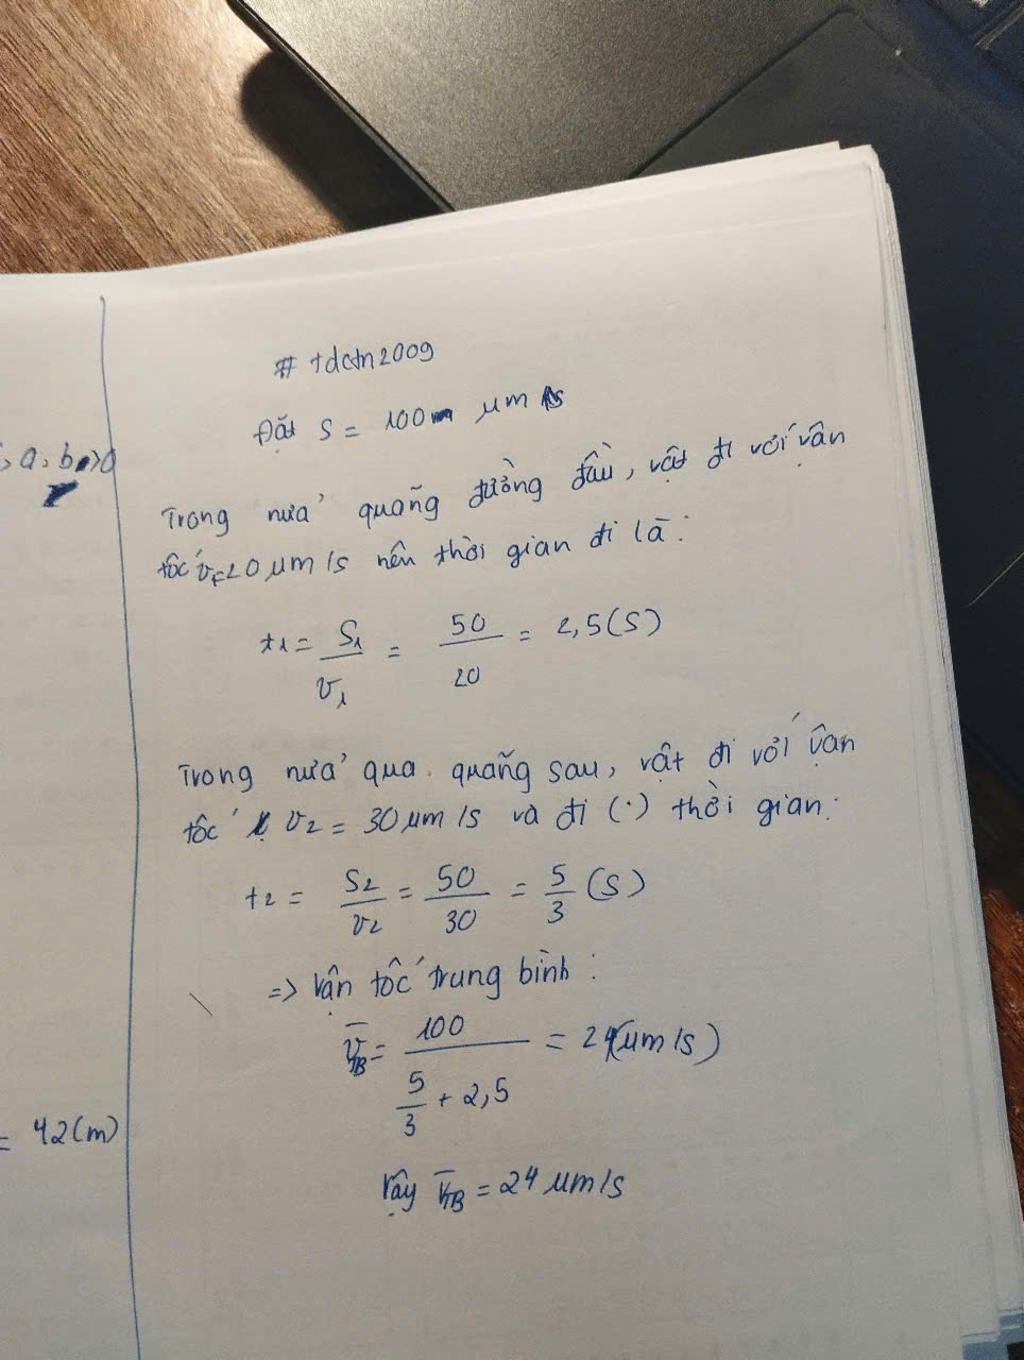 # tdctn2009
Đặt S = 100 μm
, a, b >0
Trong nửa quãng đường đầu, vật đi với vận
tốc v₁=20 μm/s nên thời gian đi là:
t₁ = S₁/v₁ = 50/20 = 2,5 (s)
Trong nửa qua quãng sau, vật đi với vận
tốc v₂ = 30 μm/s và đi (·) thời gian:
t₂ = S₂/v₂ = 50/30 = 5/3 (s)
=> Vận tốc trung bình:
v̄TB = 100/(5/3 + 2,5) = 24 (μm/s)
= 42 (m)
Vậy v̄TB = 24 μm/s